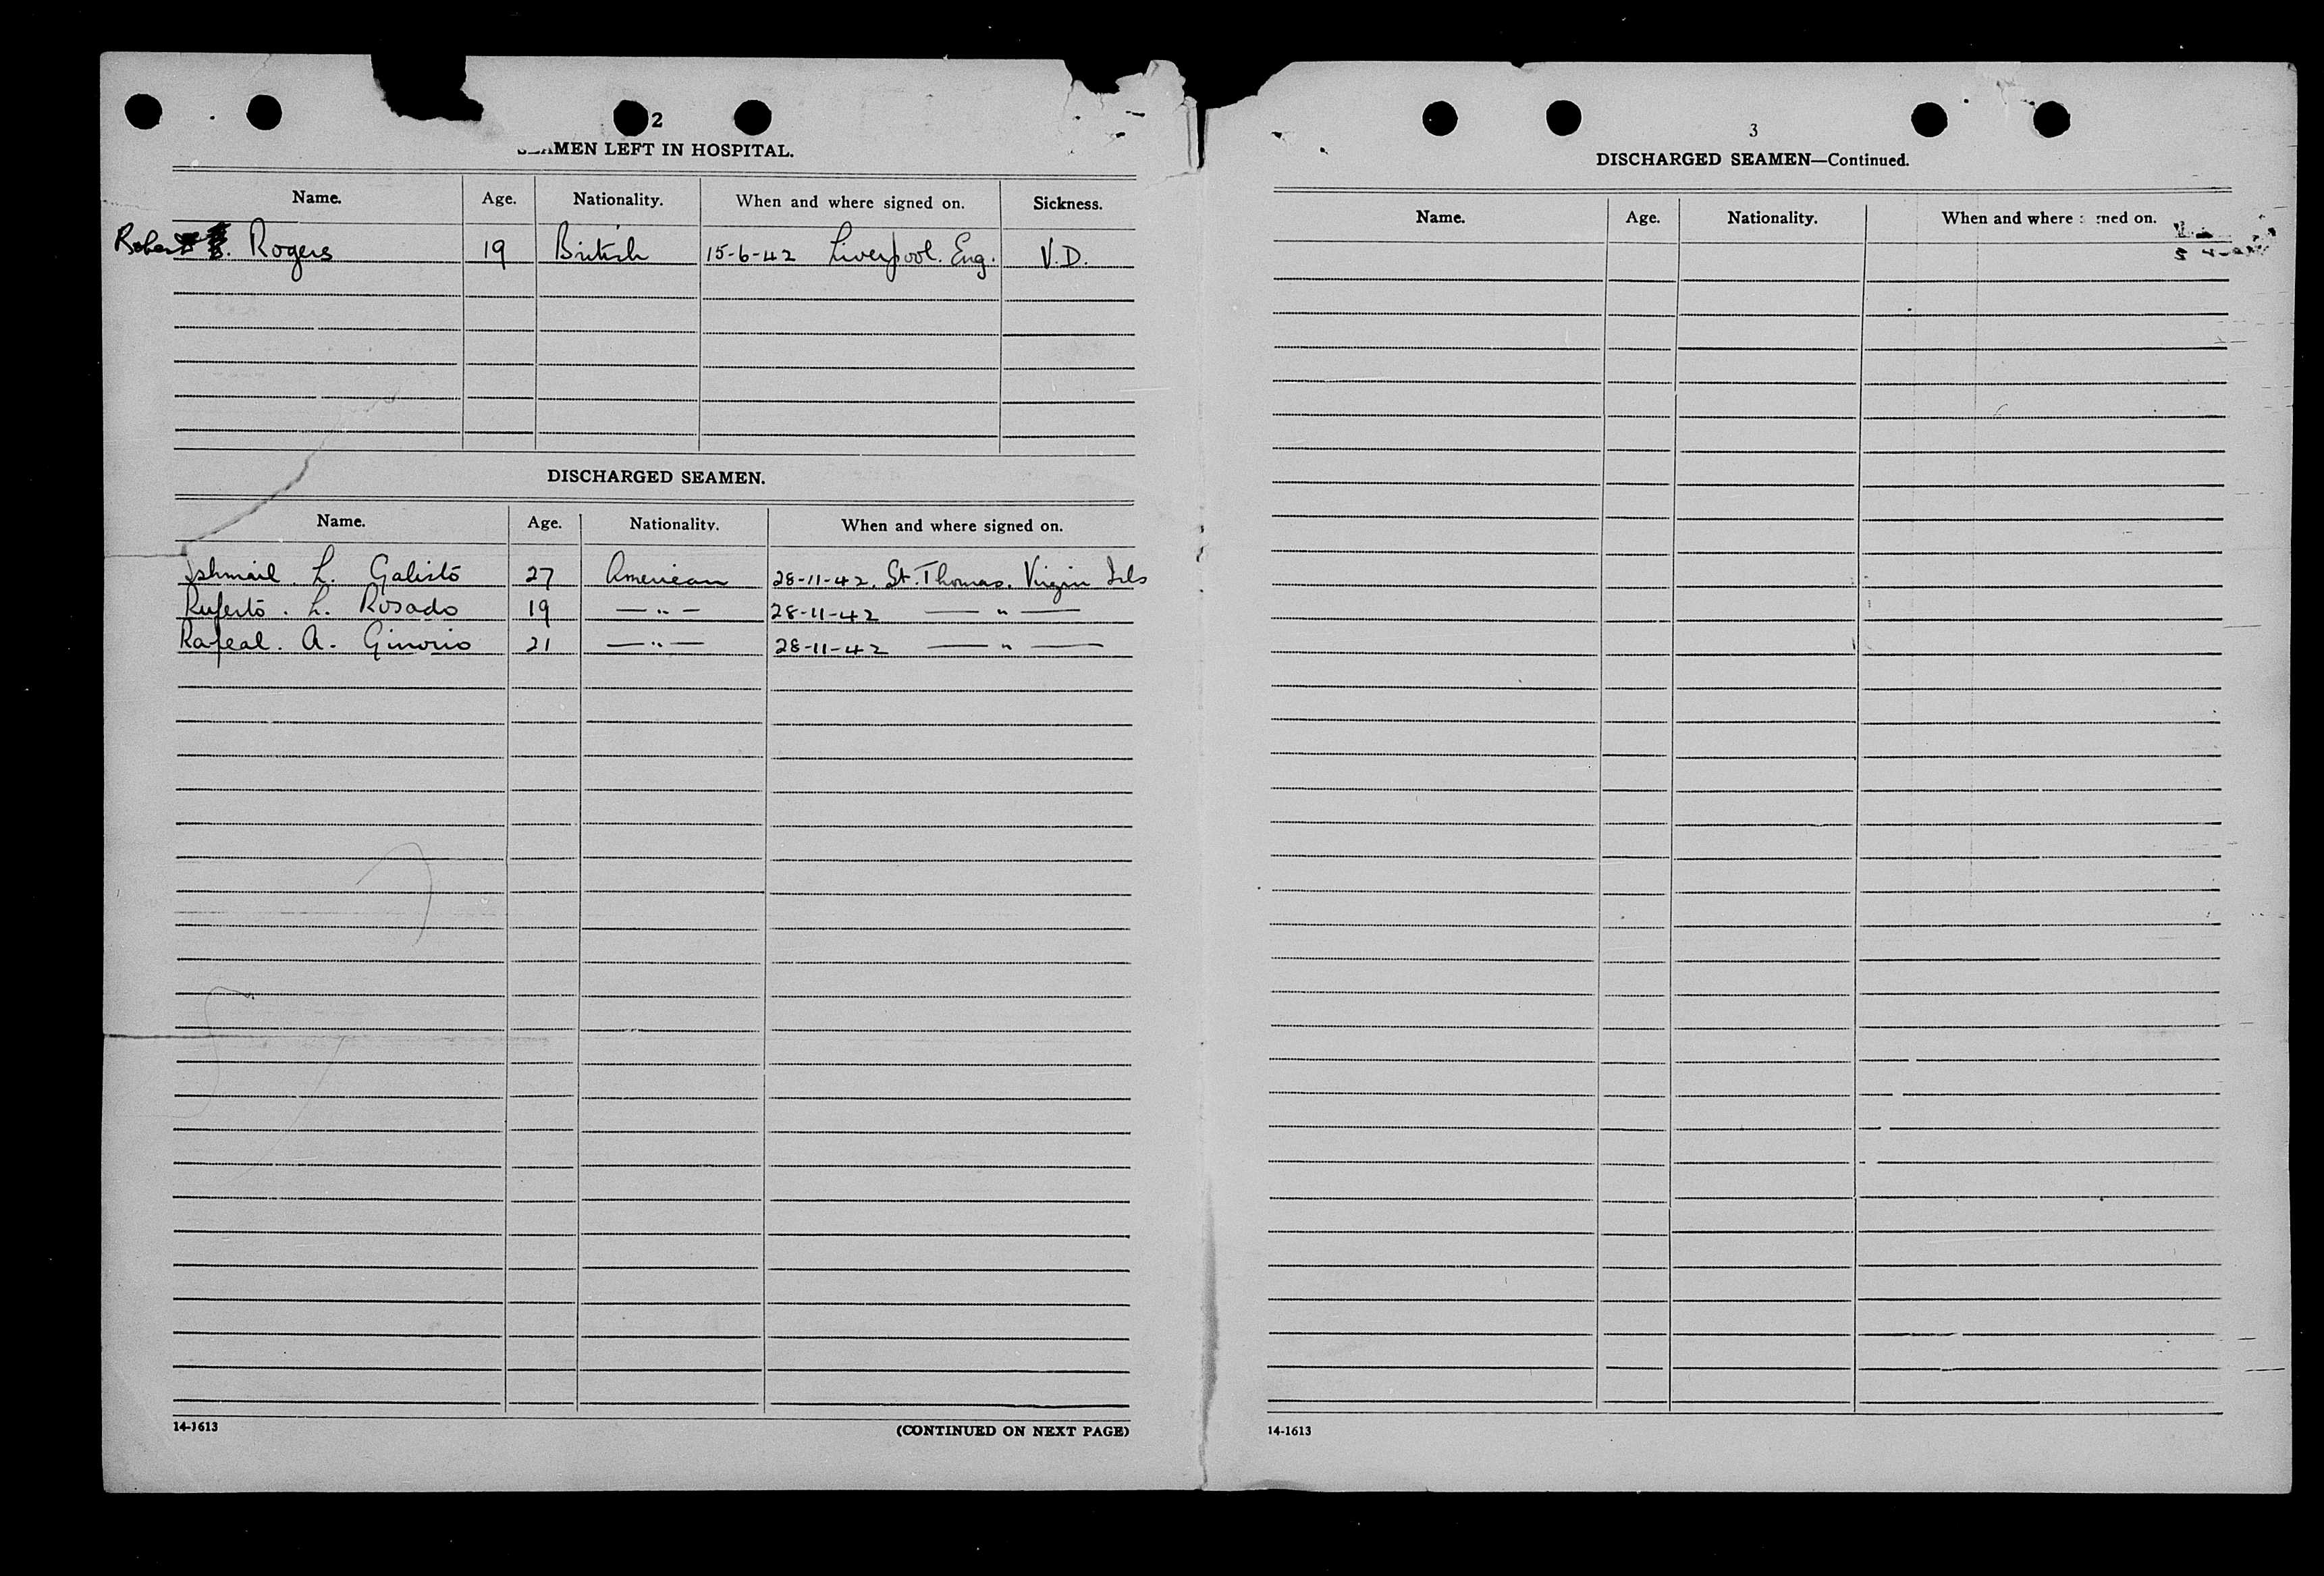 2
SEAMEN LEFT IN HOSPITAL.
Name. Age. Nationality. When and where signed on. Sickness.
Robert B. Rogers 19 British 15-6-42 Liverpool. Eng. V.D.
DISCHARGED SEAMEN.
Name. Age. Nationality. When and where signed on.
Ishmail. L. Galisto 27 American 28-11-42. St. Thomas. Virgin Isls
Ruferto. L. Rosado 19 — " — 28-11-42 — " —
Rafeal. A. Ginorio 21 — " — 28-11-42 — " —
14-1613 (CONTINUED ON NEXT PAGE)
3
DISCHARGED SEAMEN—Continued.
Name. Age. Nationality. When and where signed on.
14-1613